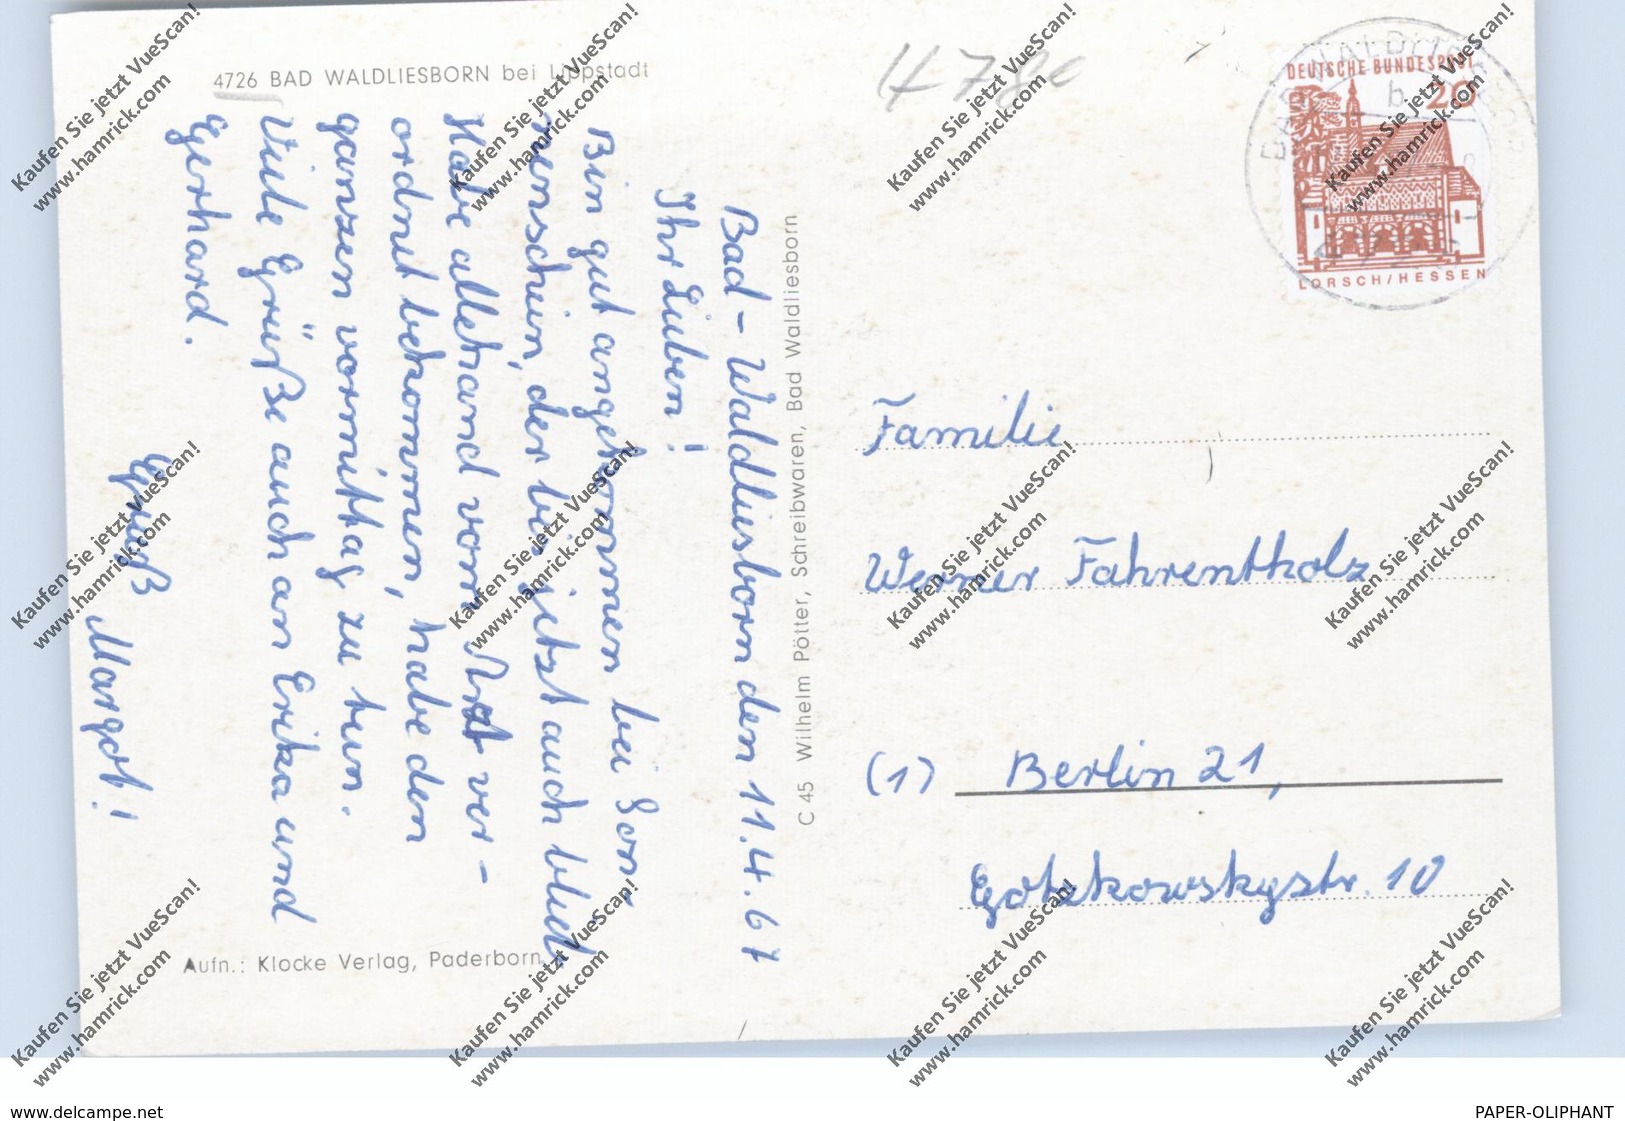 4726 BAD WALDLIESBORN bei Lippstadt
Bad-Waldliesborn den 11.4.67
Ihr Lieben!
Bin gut angekommen bei Son-
nenschein, der bis jetzt auch blieb.
Habe allerhand vom Arzt ver-
ordnet bekommen, habe den
ganzen vormittag zu tun.
Viele Grüße auch an Erika und
Gerhard.
Gruß Margot!
Aufn.: Klocke Verlag, Paderborn
C 45 Wilhelm Pötter, Schreibwaren, Bad Waldliesborn
DEUTSCHE BUNDESPOST
20
LORSCH/HESSEN
b
Familie
Werner Fahrentholz
(1) Berlin 21,
Gotzkowskystr. 10
Kaufen Sie jetzt VueScan!
www.hamrick.com
Kaufen Sie jetzt VueScan!
www.hamrick.com
Kaufen Sie jetzt VueScan!
www.hamrick.com
Kaufen Sie jetzt VueScan!
www.hamrick.com
Kaufen Sie jetzt VueScan!
www.hamrick.com
Kaufen Sie jetzt VueScan!
www.hamrick.com
Kaufen Sie jetzt VueScan!
www.hamrick.com
Kaufen Sie jetzt VueScan!
www.hamrick.com
Kaufen Sie jetzt VueScan!
www.hamrick.com
Kaufen Sie jetzt VueScan!
www.hamrick.com
Kaufen Sie jetzt VueScan!
www.hamrick.com
Kaufen Sie jetzt VueScan!
www.hamrick.com
www.delcampe.net
PAPER-OLIPHANT